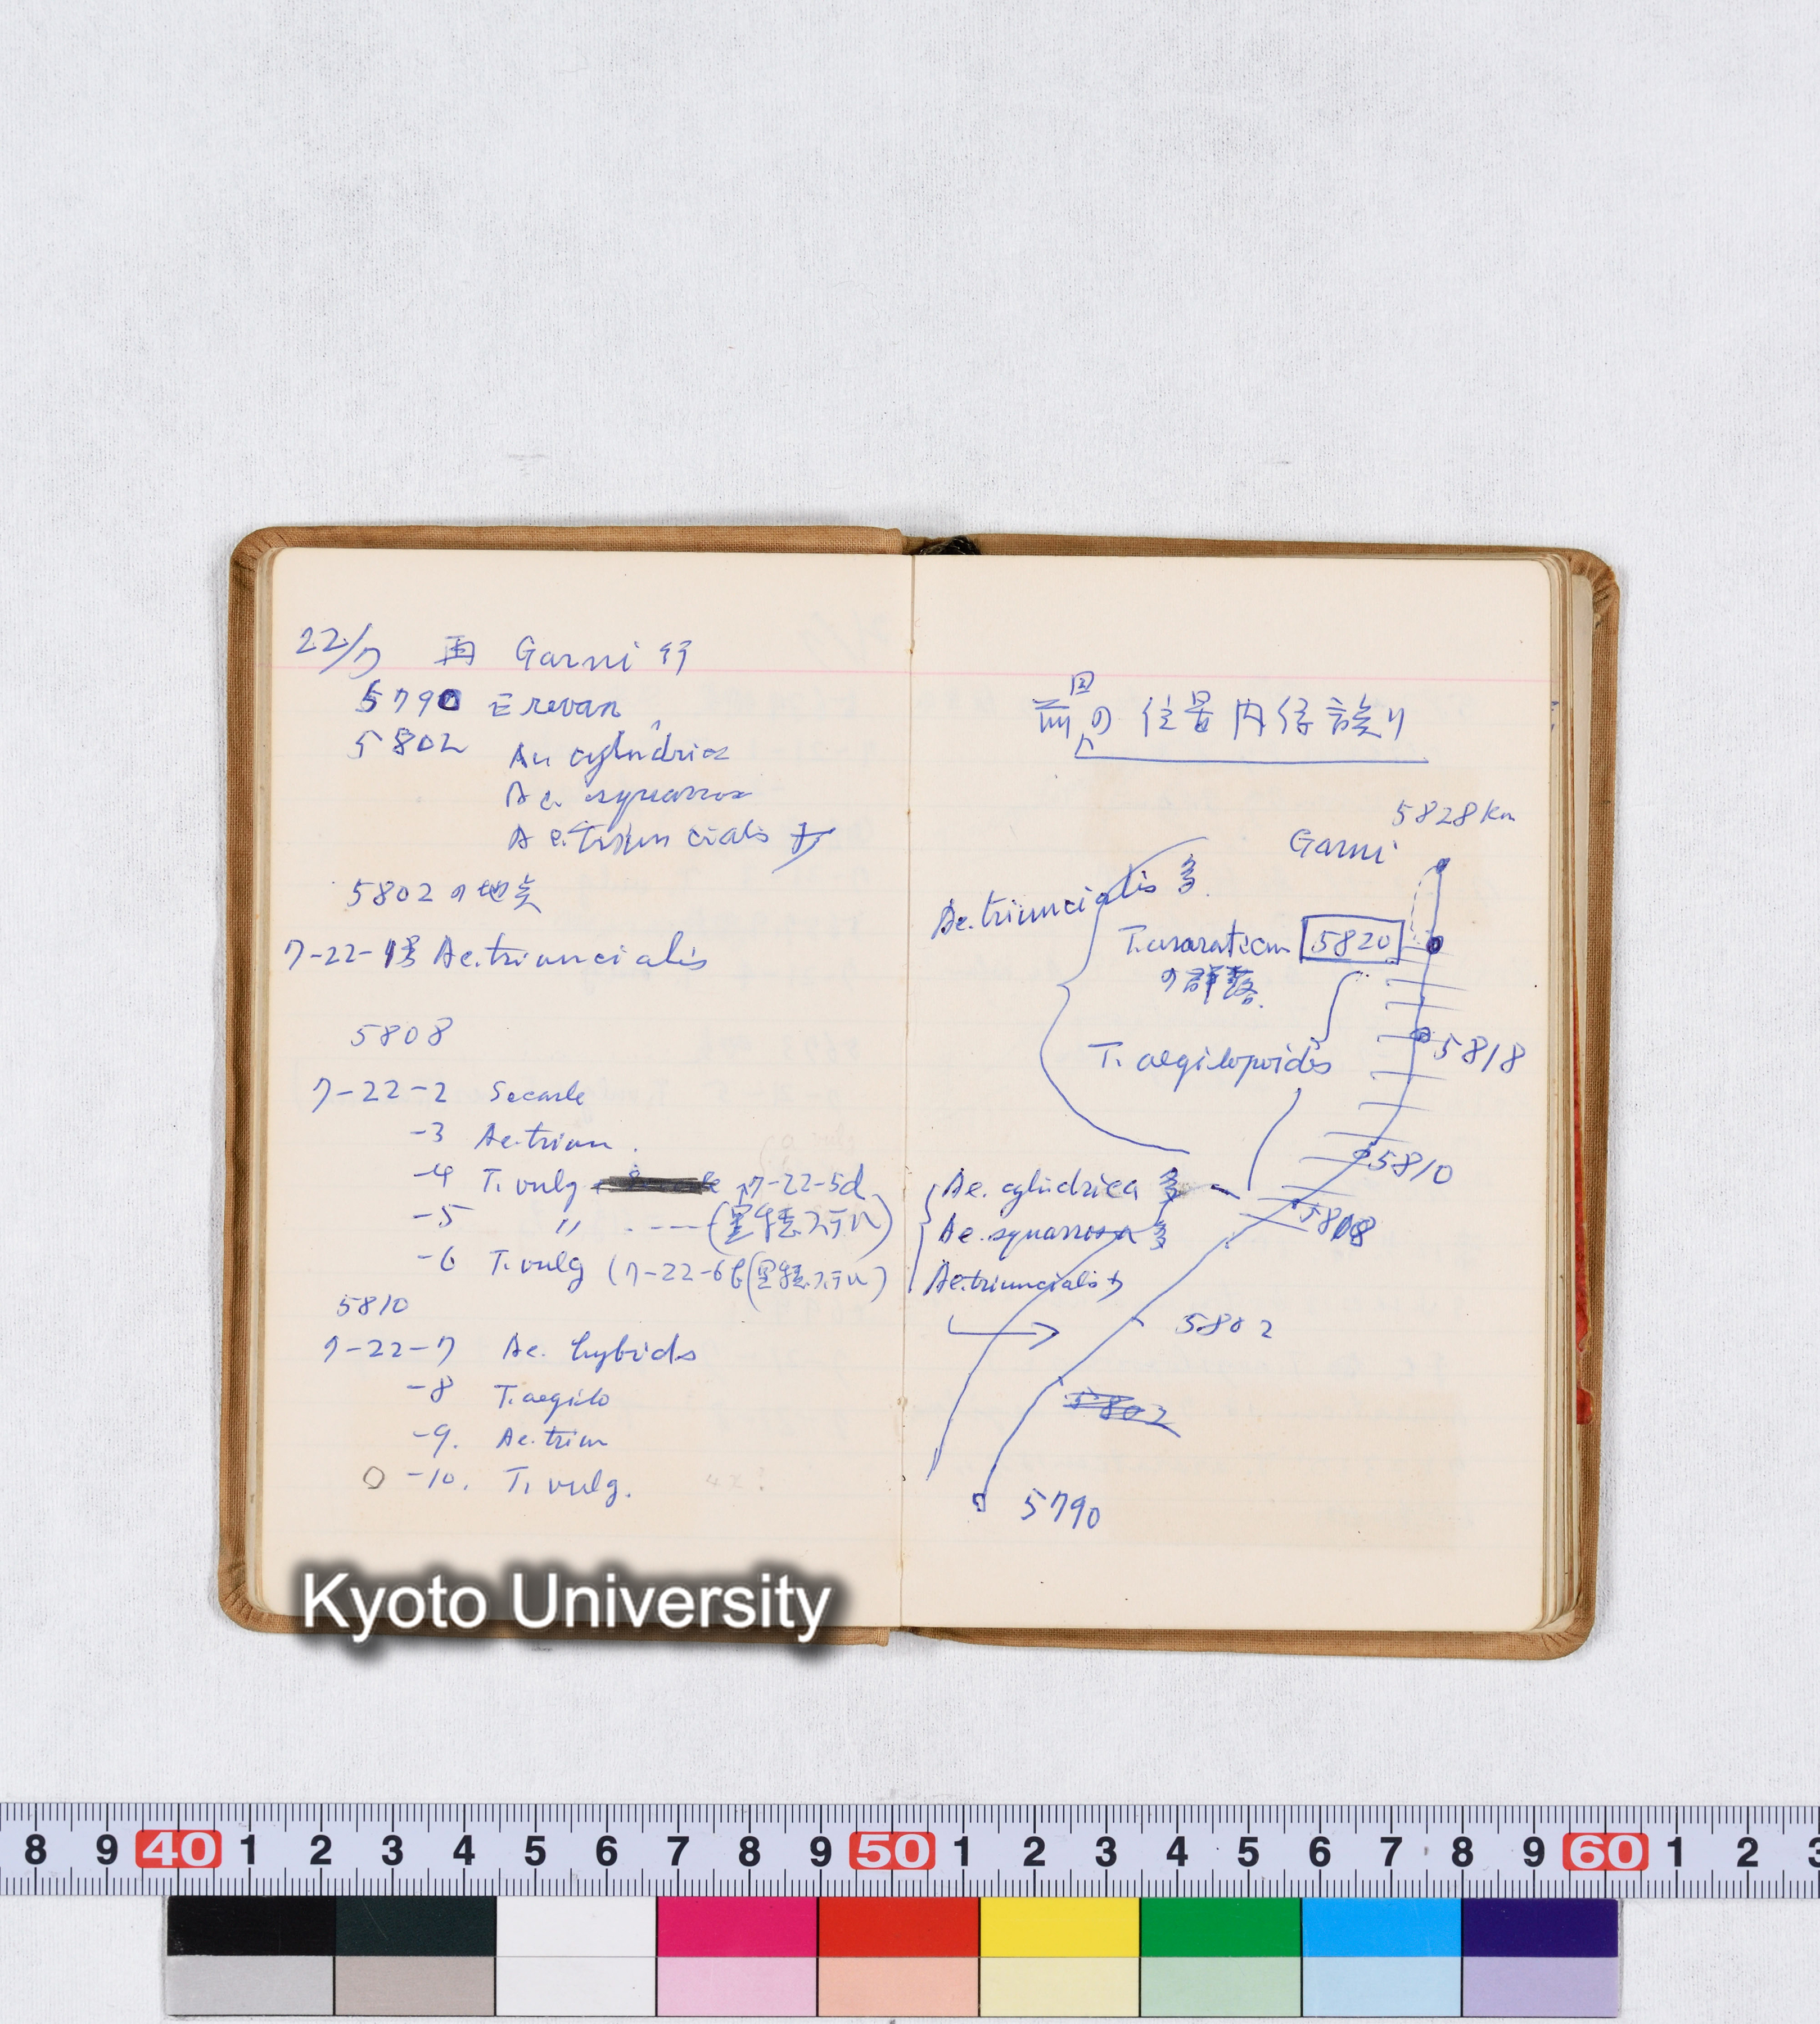 22/7 再 Garni 行
5790 Erevan
5802 Ae. cylindrica
Ae. squarrosa
Ae. triuncialis 少
5802の地点
7-22-1 Ae. triuncialis
5808
7-22-2 Secale
-3 Ae. triun.
-4 T. vulg 7-22-5d
-5 〃 ----(黒穂ステル)
-6 T. vulg (7-22-6b(黒穂ステル)
5810
7-22-7 Ae. hybrids
-8 T. aegilo
-9. Ae. triun
-10. T. vulg. 4x?
前回の位置内
5828 km
Garni
Ae. triuncialis 多.
T. araraticum 5820
の群落.
5818
T. aegilopoides
5810
Ae. cylindrica 多
Ae. squarrosa 多
5808
Ae. triuncialis 少
5802
5802
5790
Kyoto University
8 9 40 1 2 3 4 5 6 7 8 9 50 1 2 3 4 5 6 7 8 9 60 1 2 3